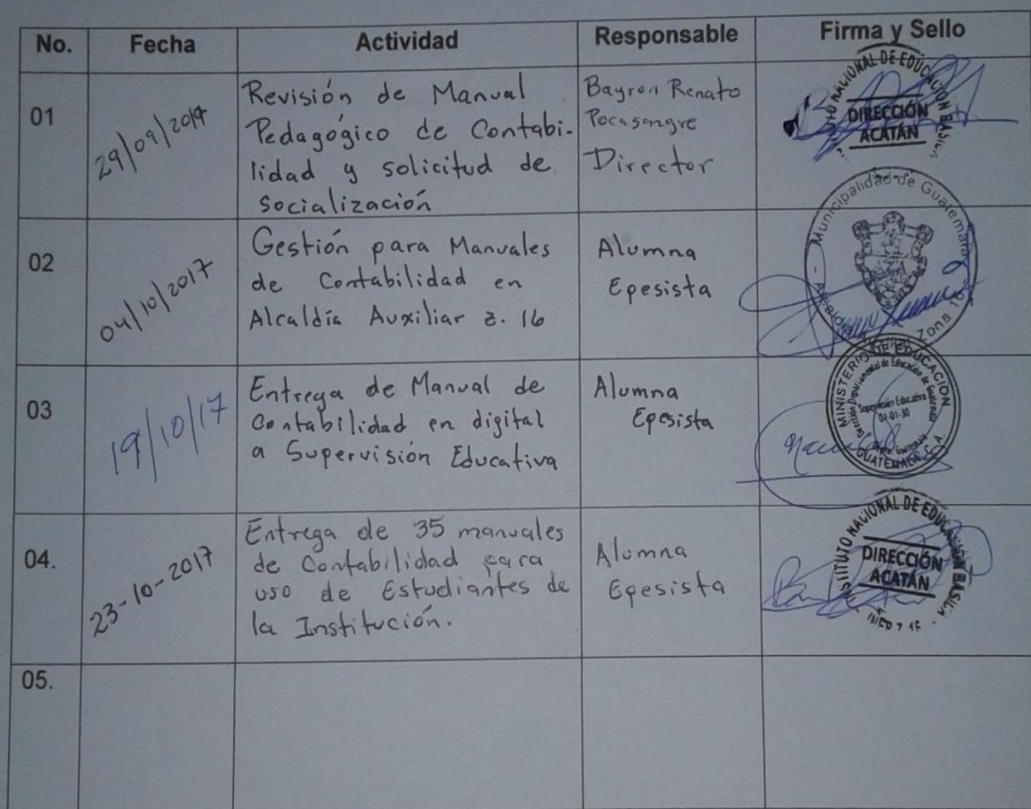 No. Fecha Actividad Responsable Firma y Sello
01
29/09/2017
Revisión de Manual
Pedagógico de Contabi-
lidad y solicitud de
socialización
Bayron Renato
Pocasangre
Director
DIRECCIÓN
ACATÁN
02
04/10/2017
Gestión para Manuales
de Contabilidad en
Alcaldía Auxiliar z. 16
Alumna
Epesista
Municipalidad de Guatemala
Zona 16
03
19/10/17
Entrega de Manual de
Contabilidad en digital
a Supervisión Educativa
Alumna
Epesista
MINISTERIO DE EDUCACION
Supervisión Educativa
01-01-30
GUATEMALA, C. A.
04.
23-10-2017
Entrega de 35 manuales
de Contabilidad para
uso de Estudiantes de
la Institución.
Alumna
Epesista
INSTITUTO NACIONAL DE EDUCACIÓN BASICA
DIRECCIÓN
ACATÁN
05.